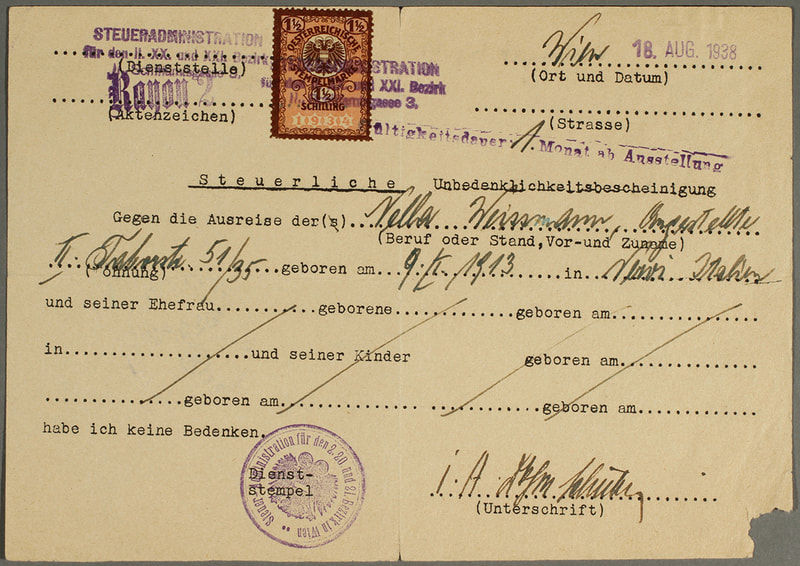 STEUERADMINISTRATION
für den II. XX. und XXI. Bezirk
(Dienststelle)
Rayon 2
(Aktenzeichen)
1½ 1½
OESTERREICHISCHE
STEMPELMARKE
1½
SCHILLING
1934
ISTRATION
XXI. Bezirk
gasse 3,
Wien 18. AUG. 1938
(Ort und Datum)
(Strasse)
ültigkeitsdauer 1. Monat ab Ausstellung
Steuerliche Unbedenklichkeitsbescheinigung
Gegen die Ausreise der(s) Nella Weissmann, Angestellte
(Beruf oder Stand, Vor-und Zuname)
II. Taborstr. 51/35 geboren am 9/X. 1913 in Nervi Italien
(Wohnung)
und seiner Ehefrau geborene geboren am
in und seiner Kinder geboren am
geboren am geboren am
habe ich keine Bedenken.
Steueradministration für den 2. 20. und 21. Bezirk in Wien
Dienst-
stempel
i. A.
(Unterschrift)